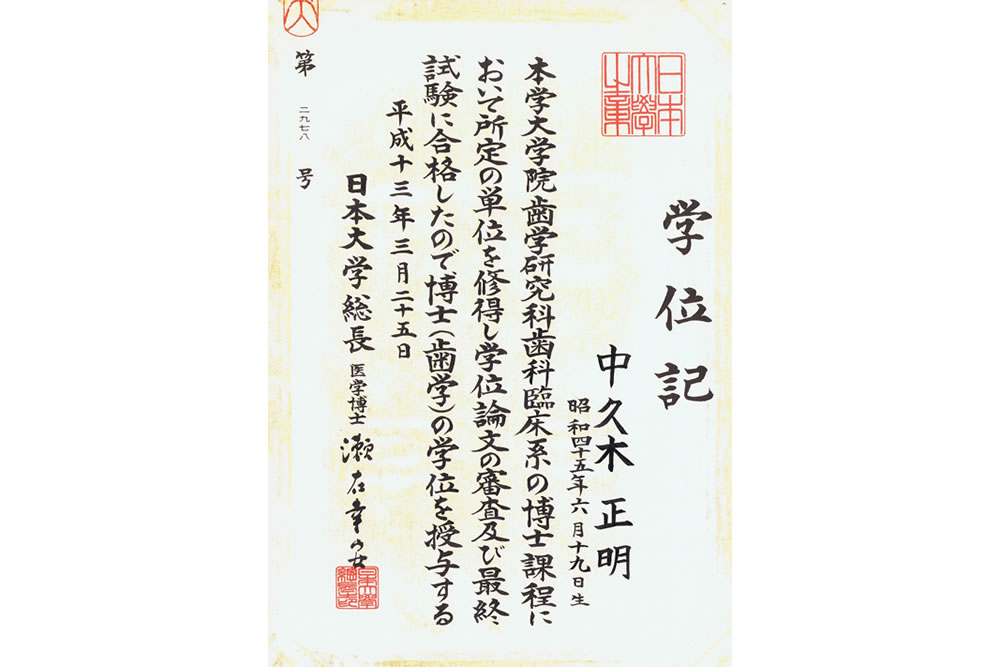 学位記
日本大學之章
中久木 正明
昭和四十五年六月十九日生
本学大学院歯学研究科歯科臨床系の博士課程に
おいて所定の単位を修得し学位論文の審査及び最終
試験に合格したので博士(歯学)の学位を授与する
平成十三年三月二十五日
日本大学総長 医学博士 瀬在幸安
第 二九七八 号